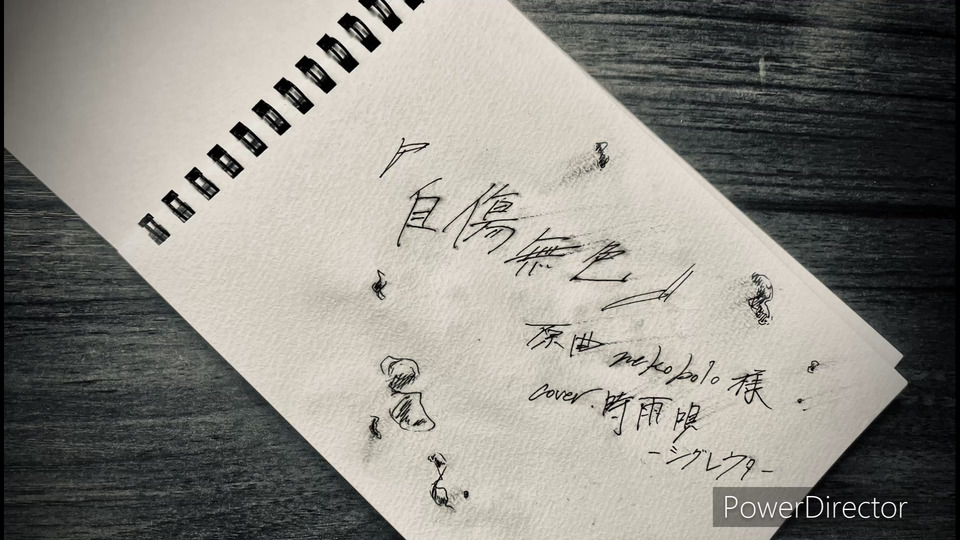 『自傷無色』
原曲 nekobolo 様
cover. 時雨唄
－シグレウター
PowerDirector